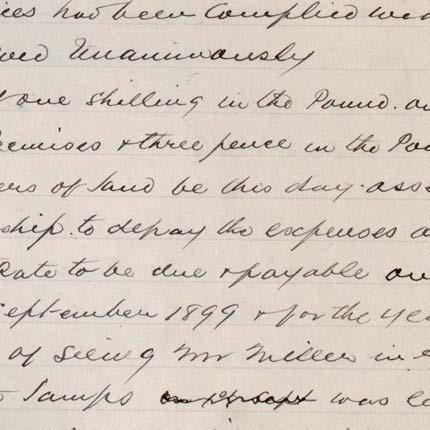 ies had been Complied wi
ved Unanimously
t one shilling in the Pound. on
emises & three pence in the Pou
ers of land be this day ass
ship. to defray the expenses o
Rate to be due & payable on
September 1899 & for the Yea
of Seeing Mr Miller in
Lamps on 12 Sept was le